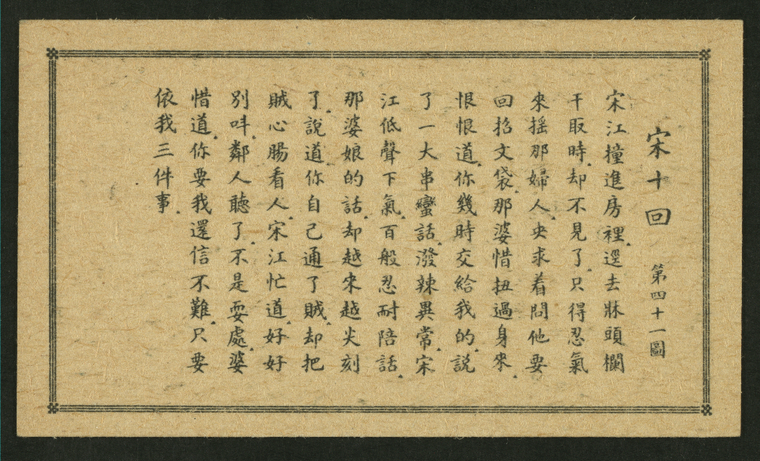 宋十回
第四十一圖
宋江撞進房裡逕去牀頭欄
干取時却不見了只得忍氣
來搖那婦人央求着問他要
回招文袋那婆惜扭過身來
恨恨道你幾時交給我的說
了一大串蠻話潑辣異常宋
江低聲下氣百般忍耐陪話
那婆娘的話却越來越尖刻
了說道你自己通了賊却把
賊心腸看人宋江忙道好好
別吽鄰人聽了不是耍處婆
惜道你要我還信不難只要
依我三件事